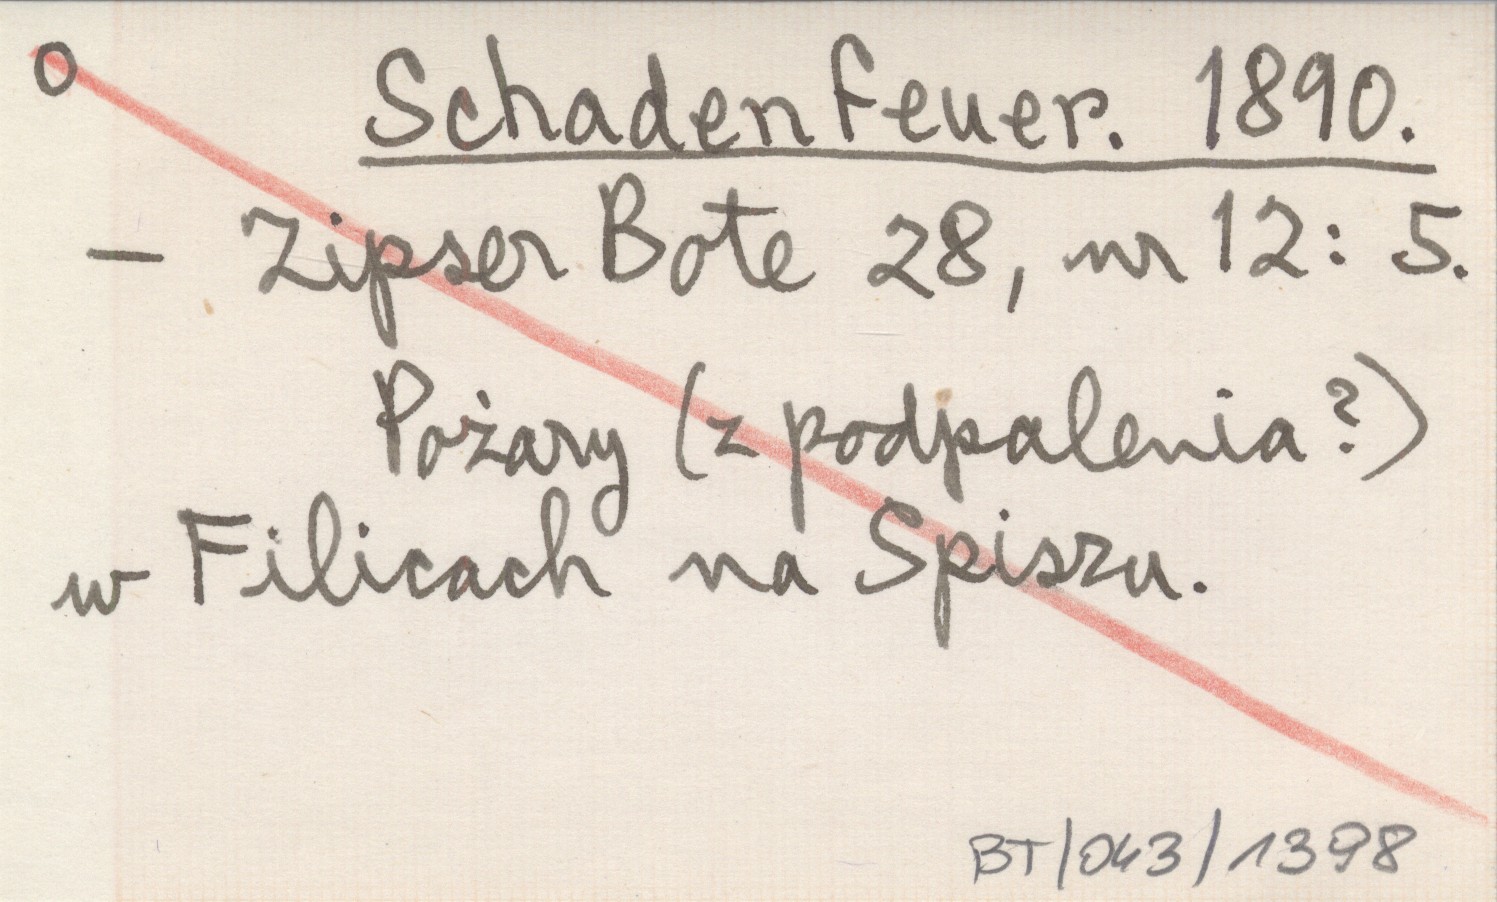 o Schadenfeuer. 1890.
— Zipser Bote 28, nr 12: 5.
Pożary (z podpalenia?)
w Filicach na Spiszu.
BT/043/1398